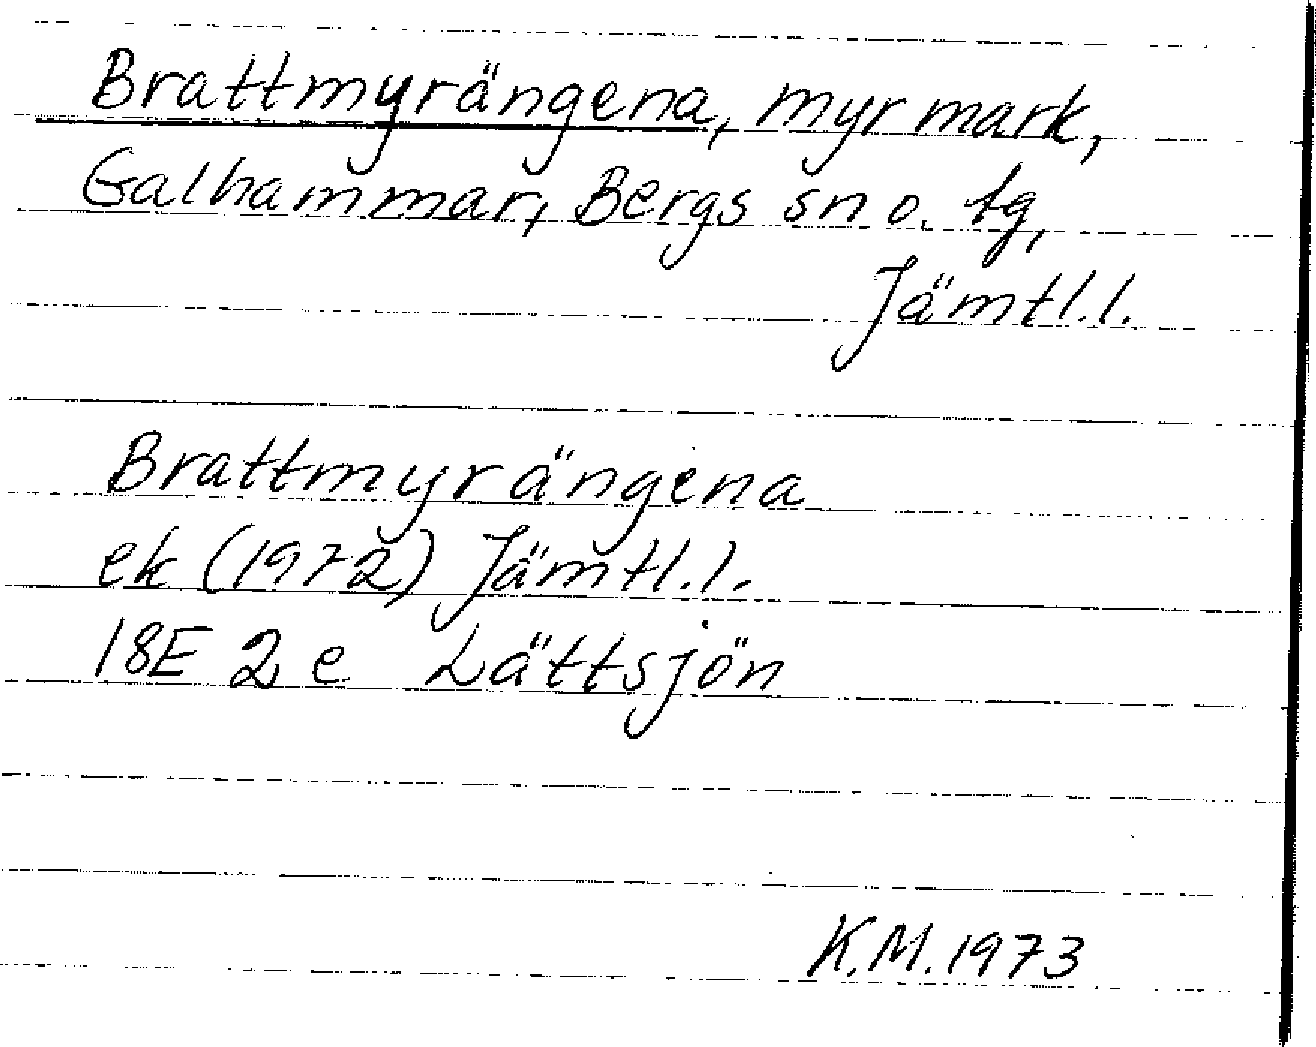 Brattmyrängena, myrmark,
Galhammar, Bergs sn o. tg,
Jämtl.l.
Brattmyrängena
ek (1972) Jämtl.l.
18E 2e Lättsjön
K.M.1973